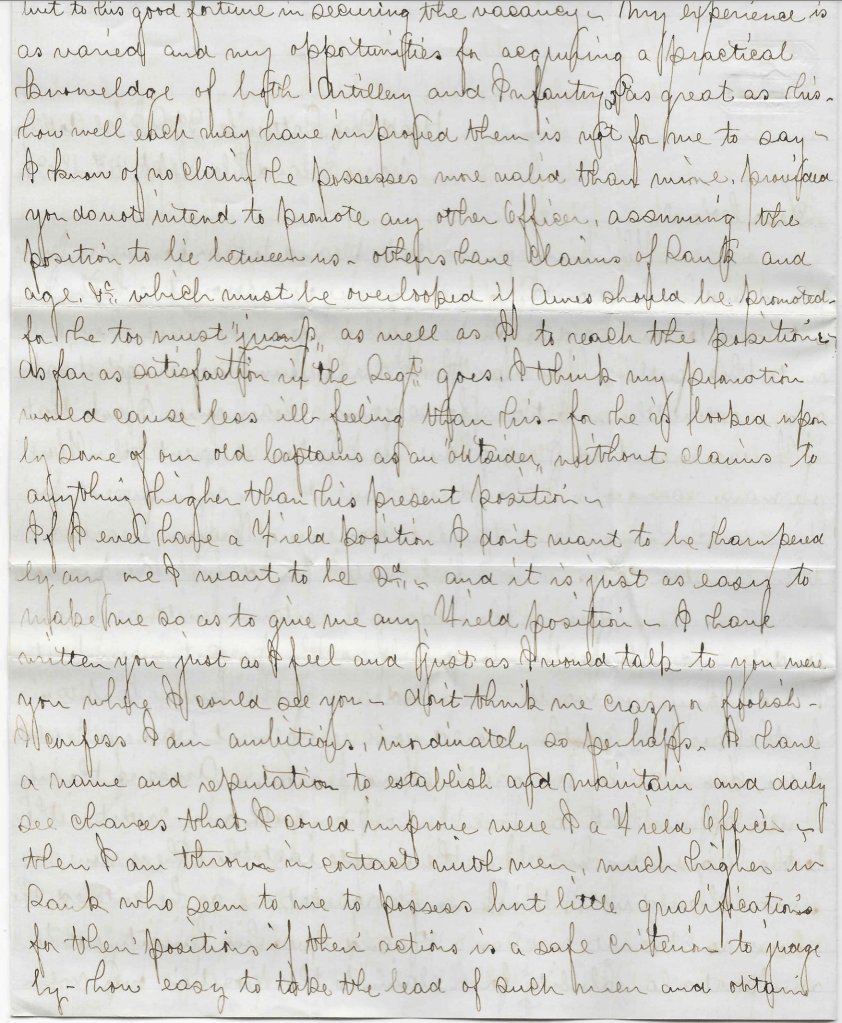 but to his good fortune in securing the vacancy – My experience is
as varied and my opportunities for acquiring a practical
knoweldge of both Artillery and Infantry as great as his –
how well each may have improved them is not for me to say –
I know of no claim he possesses more valid than mine, provided
you do not intend to promote any other Officer, assuming the
position to lie between us – others have claims of Rank and
age, &c. which must be overlooked if Ames should be promoted –
for he too must "jump" as well as I to reach the position –
As far as satisfaction in the Regt goes, I think my promotion
would cause less ill feeling than his – for he is looked upon
by some of our old Captains as an "outsider" without claims to
anything higher than his present position –
If I ever have a Field position I don't want to be hampered
by any one I want to be 2d – and it is just as easy to
make me so as to give me any Field position – I have
written you just as I feel and just as I would talk to you were
you where I could see you – don't think me crazy or foolish –
I confess I am ambitious, inordinately so perhaps. I have
a name and reputation to establish and maintain and daily
see chances that I could improve were I a Field Officer –
then I am thrown in contact with men, much higher in
Rank who seem to me to possess but little qualifications
for their positions if their actions is a safe criterion to judge
by – how easy to take the lead of such men and obtain